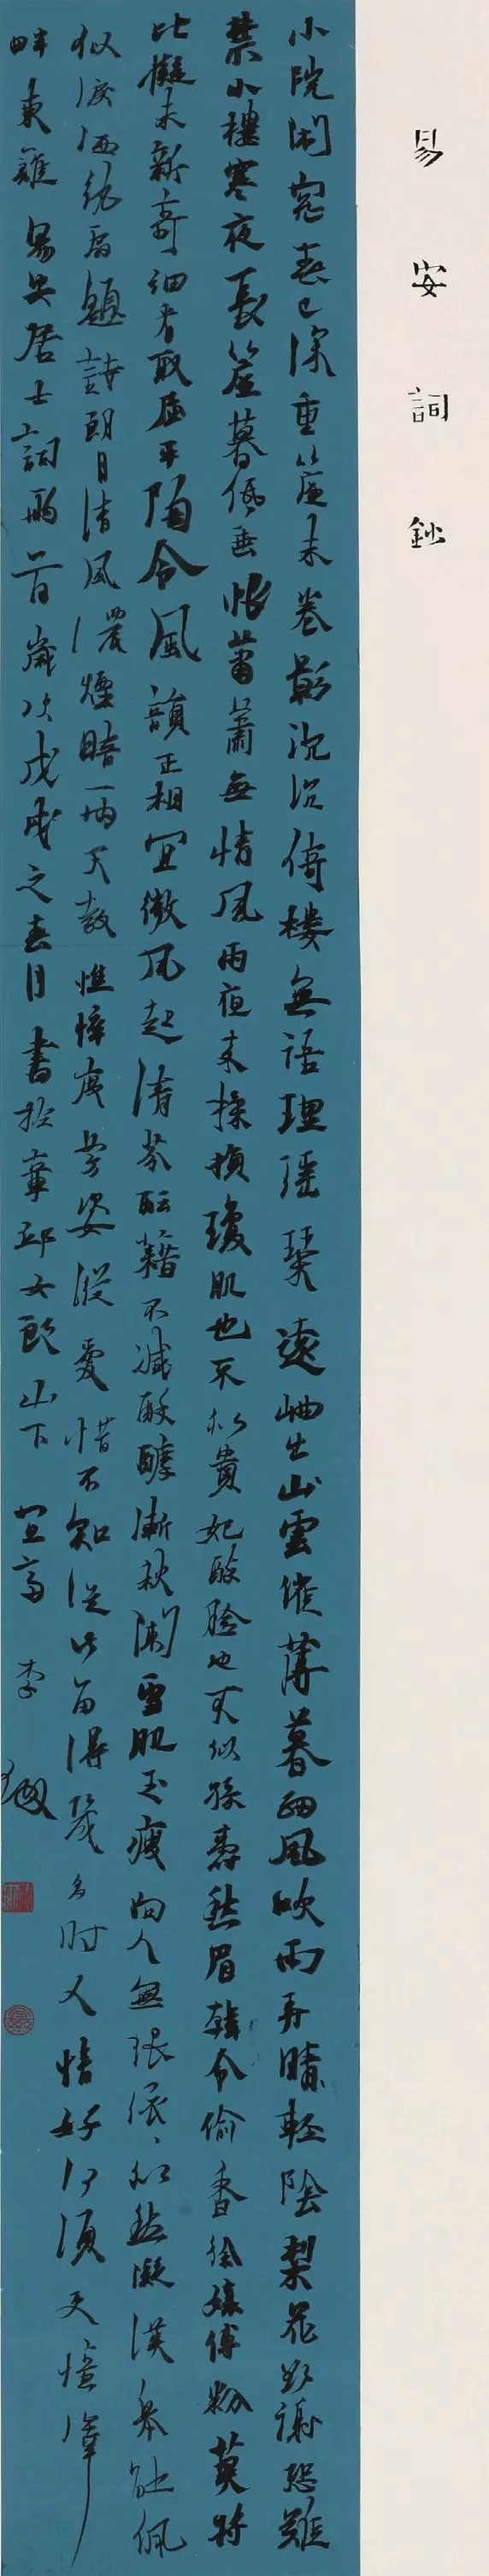 易安詞鈔
小院閒窗春已深重簾未卷影沉沉倚樓無語理瑤琴遠岫出山雲催薄暮細風吹雨弄晴輕陰梨花欲謝恐難
禁小樓寒夜長簾幕低垂恨蕭蕭無情風雨夜來揉損瓊肌也不似貴妃醉臉也不似孫壽愁眉韓令偷香徐孃傅粉莫將
比擬未新奇細看取屈平陶令風韻正相宜微風起清芬醞藉不減酴醾漸秋闌雪肌玉瘦向人無限依依似愁凝漢皋解佩
似淚洒紈扇題詩朗月清風濃煙暗雨天教憔悴度芳姿縱愛惜不知從此留得幾多時人情好何須更憶澤
畔東籬易安居士詞兩首歲次戊戌之春月書於章邱女郎山下宜齋李